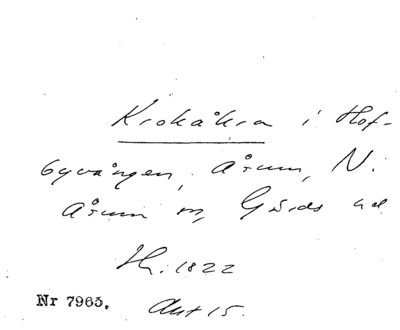 Krokåkra i Hof-
byvången, Åsum, N.
Åsum sn, Gärds hd
Hr. 1822
Nr 7965. Akt 15.